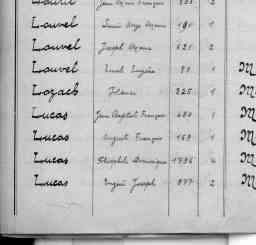 Louvel Jean Marie François 2
Louvel Louis Ange Marie 190 1
Louvel Joseph Marie 621 2
Louvel Emile Eugène 1 M
Lozach 325 1 M
Lucas Jean Baptiste François 480 1 M
Lucas August François 159 1 M
Lucas Théophile Dominique 1796 4 M
Lucas Eugène Joseph 977 2 M